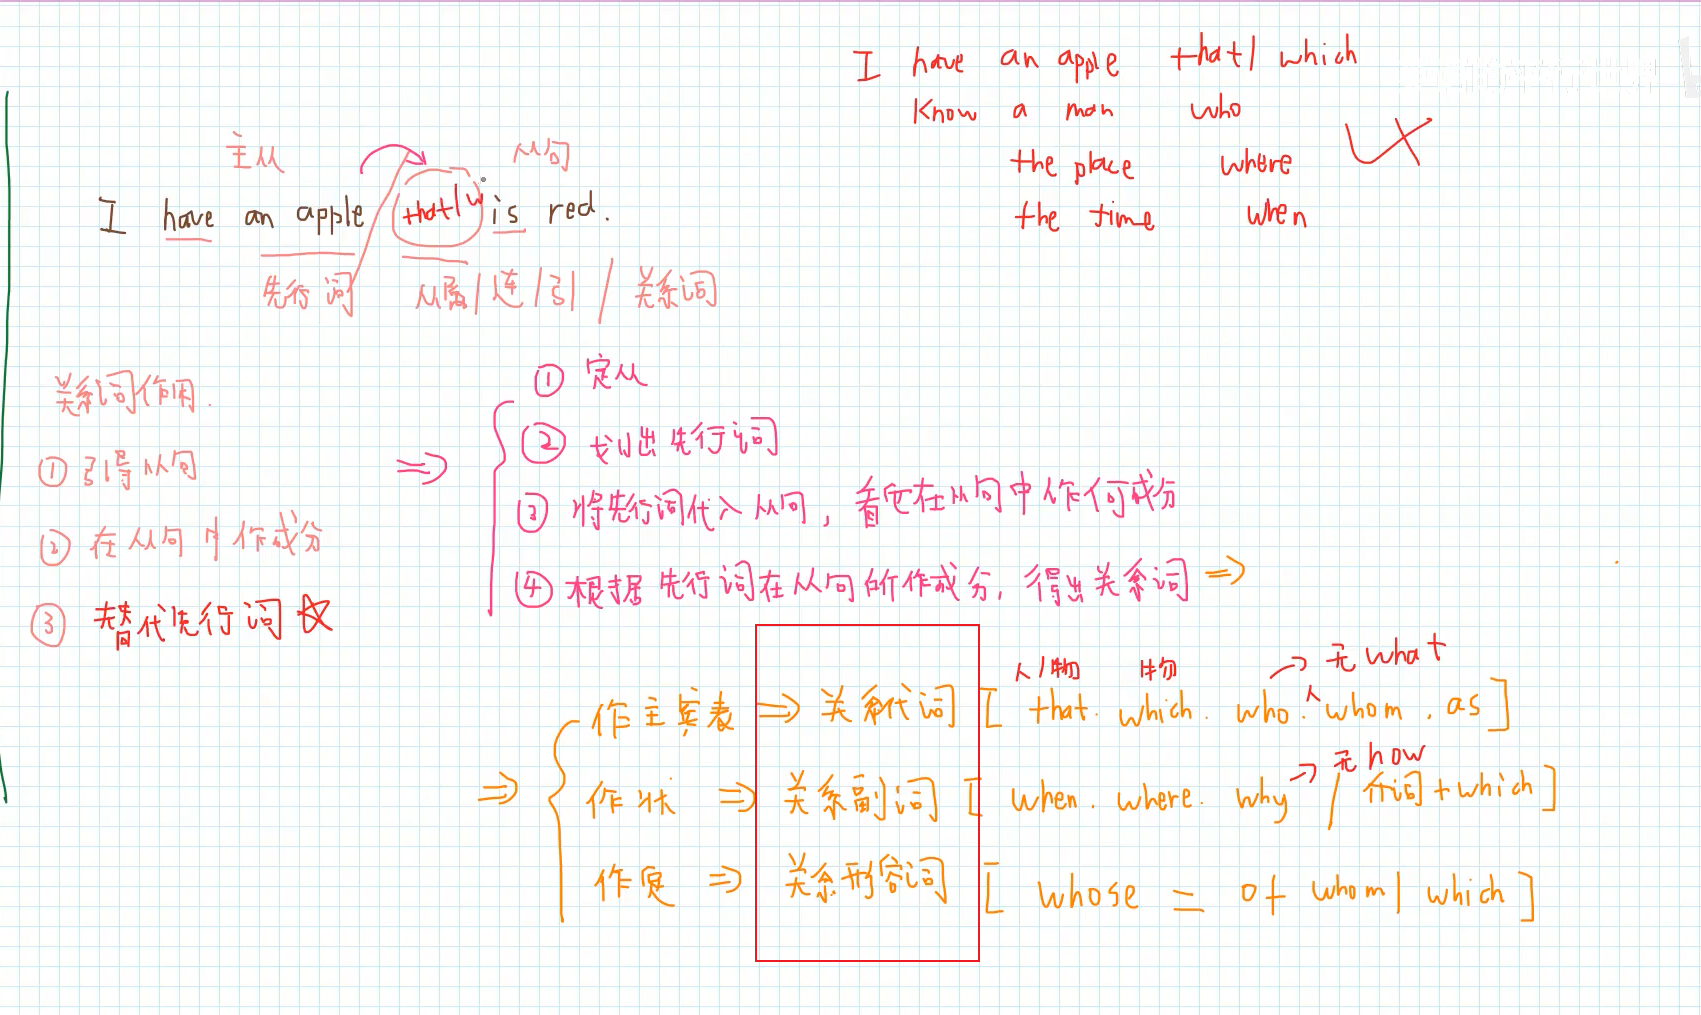 I have an apple that/ which
know a man who
the place where
the time when
主从 从句
I have an apple that/w is red.
先行词 从属/连/引/关系词
关系词作用.
① 引导从句
② 在从句中作成分
③ 替代先行词
① 定从
② 划出先行词
③ 将先行词代入从句,看它在从句中作何成分
④ 根据先行词在从句所作成分,得出关系词 ⇒
人/物 物 → 无what
作主宾表 ⇒ 关系代词 [ that. which. who. 人 whom. as ]
→ 无how
作状 ⇒ 关系副词 [ when. where. why / 介词+which ]
作定 ⇒ 关系形容词 [ whose = of whom/ which ]